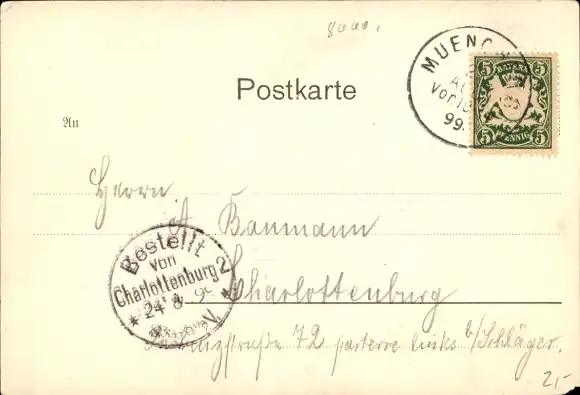 8000.
MUENC
AU
Vor 10
99.
BAYERN
5 5
5 5
PFENNIG
Postkarte
An
Herrn
A Baumann
Charlottenburg
straße 72 parterre links b/Schläger.
Bestellt
von
Charlottenburg 2
24 8
V.
2,-